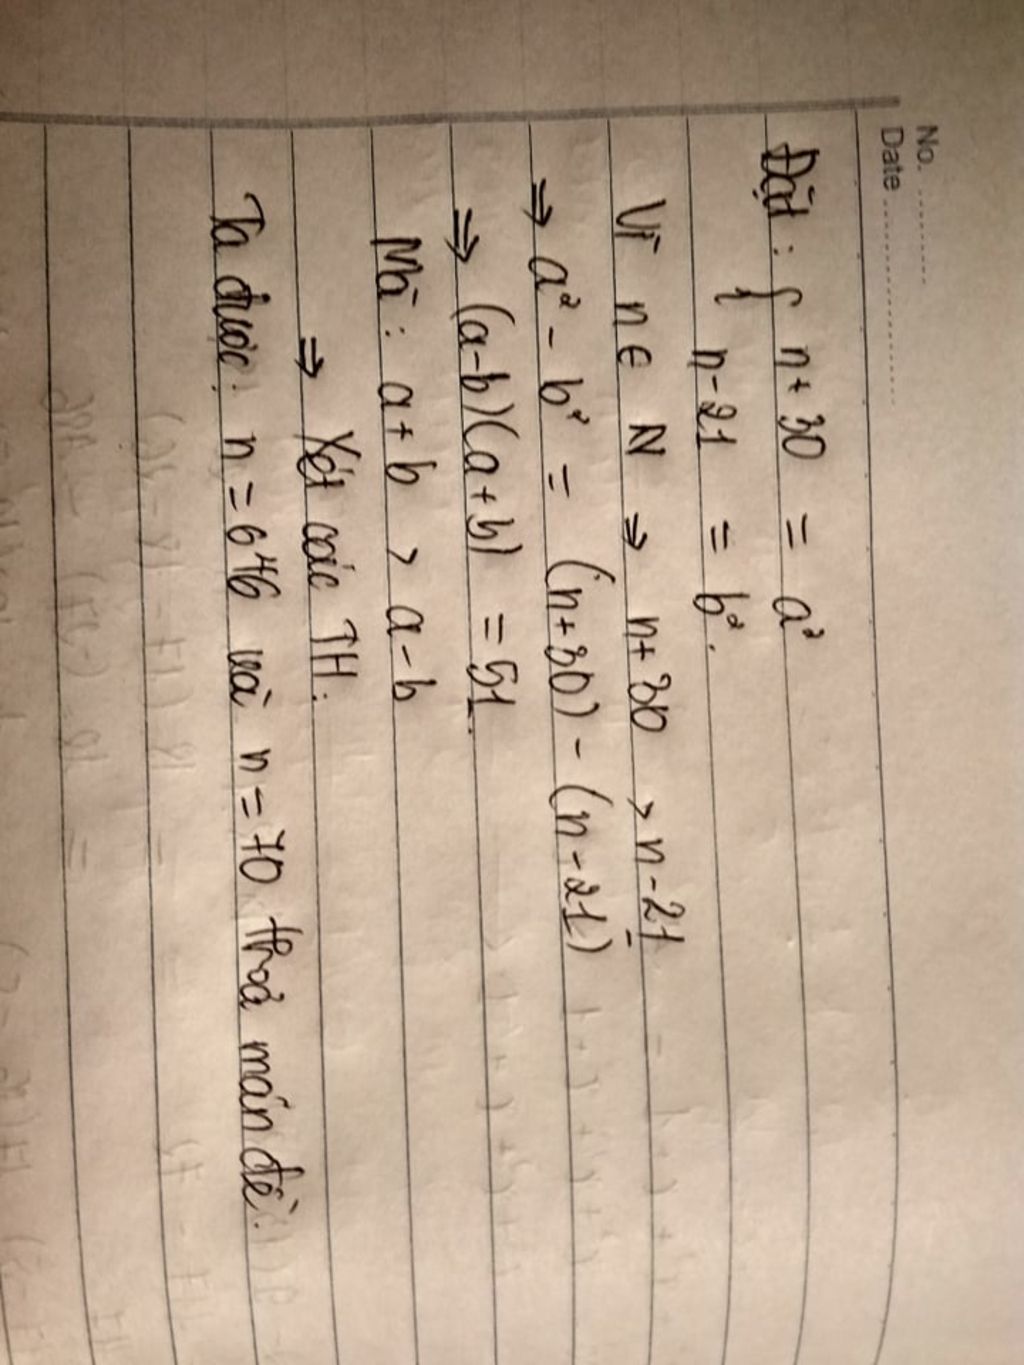 No. .............
Date .....................
Đặt : { n + 30 = a²
n - 21 = b².
Vì n ∈ N ⇒ n + 30 > n - 21
⇒ a² - b² = (n + 30) - (n - 21)
⇒ (a-b)(a+b) = 51.
Mà : a + b > a - b
⇒ Xét các TH :
Ta được : n = 646 và n = 70 thoả mãn đề.